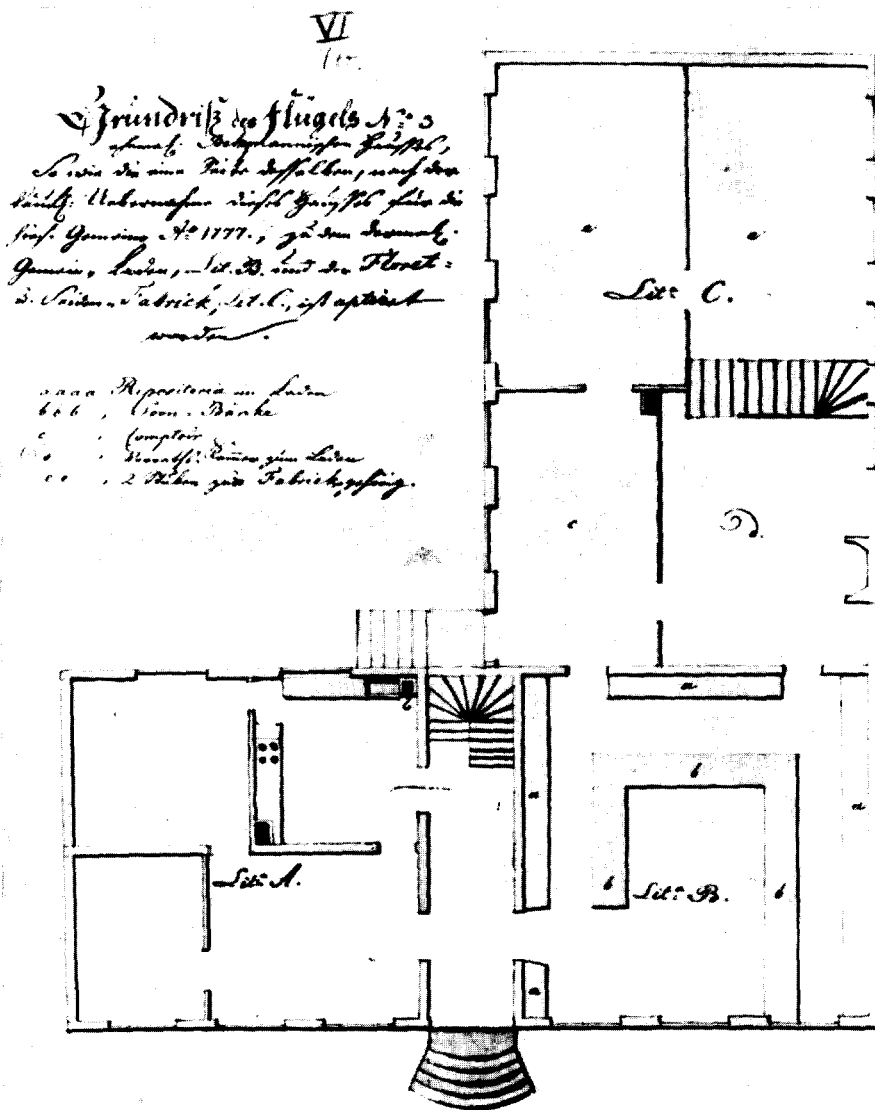 VI
Grundriß des Flügels No 3
ehemal: Hauses,
So wie die eine Seite desselben, nach der
Uebernahme dieses Hauses für die
Gemeine Ao 1777., zu dem dermal:
Gemein-Laden, Lit. B. und der Floret-
u. Seiden-Fabrick, Lit. C., ist aptirt
worden.
a a a a Repositoria im Laden
b b b " Bänke
c " Comptoir
" Vorraths-Kammer zum Laden
e e " 2 Stuben zur Fabrick gehörig.
e
e
Litr C.
c
d.
a
b
a
a
b
Litr B.
b
Litr A.
a